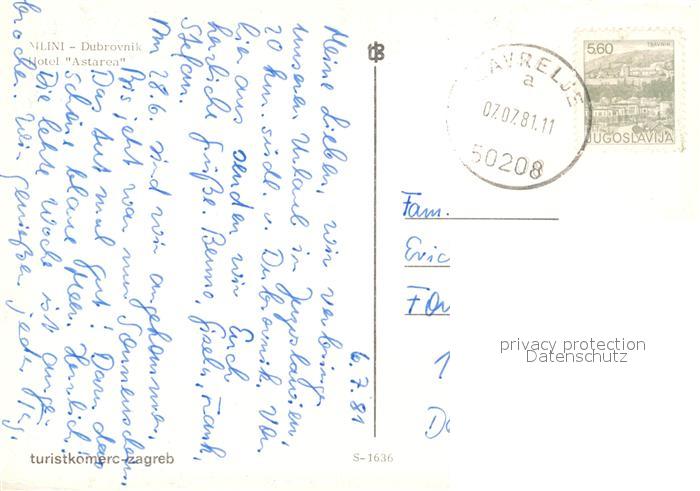 MLINI – Dubrovnik
Hotel "Astarea"
6.7.81
Meine Lieben, wir verbringen
unseren Urlaub in Jugoslawien,
20 km. südl. v. Dubrovnik. Von
hier aus senden wir Euch
herzliche Grüße. Benno, Gisela, Frank,
Stefan.
Am 28.6. sind wir angekommen.
Bis jetzt war nur Sonnenschein.
Das tut mal gut! Dazu das
schöne blaue Meer. Herrlich!
Die letzte Woche ist ange-
brochen. Wir genießen jeden Tag.
turistkomerc-zagreb
S-1636
TB
AVRELJE
a
07.07.81.11
50208
5,60
TRAVNIK
JUGOSLAVIJA
Fam.
Eric
1
privacy protection
Datenschutz